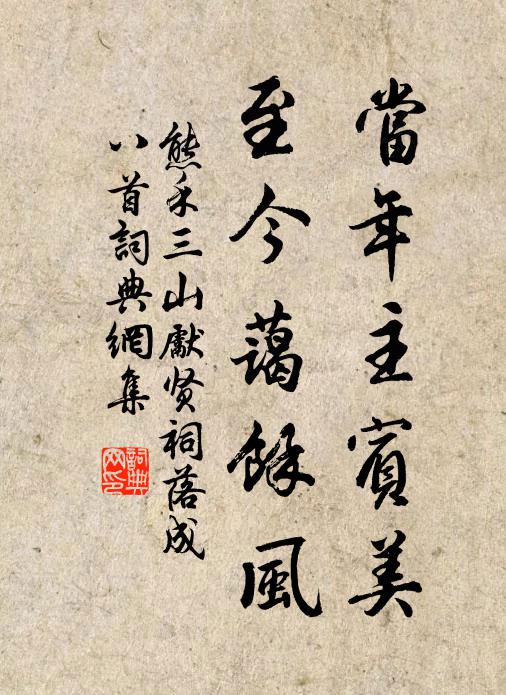 當年主賓美
至今藹餘風
熊禾三山獻贤祠落成
八首詞典網集
詞典
网印